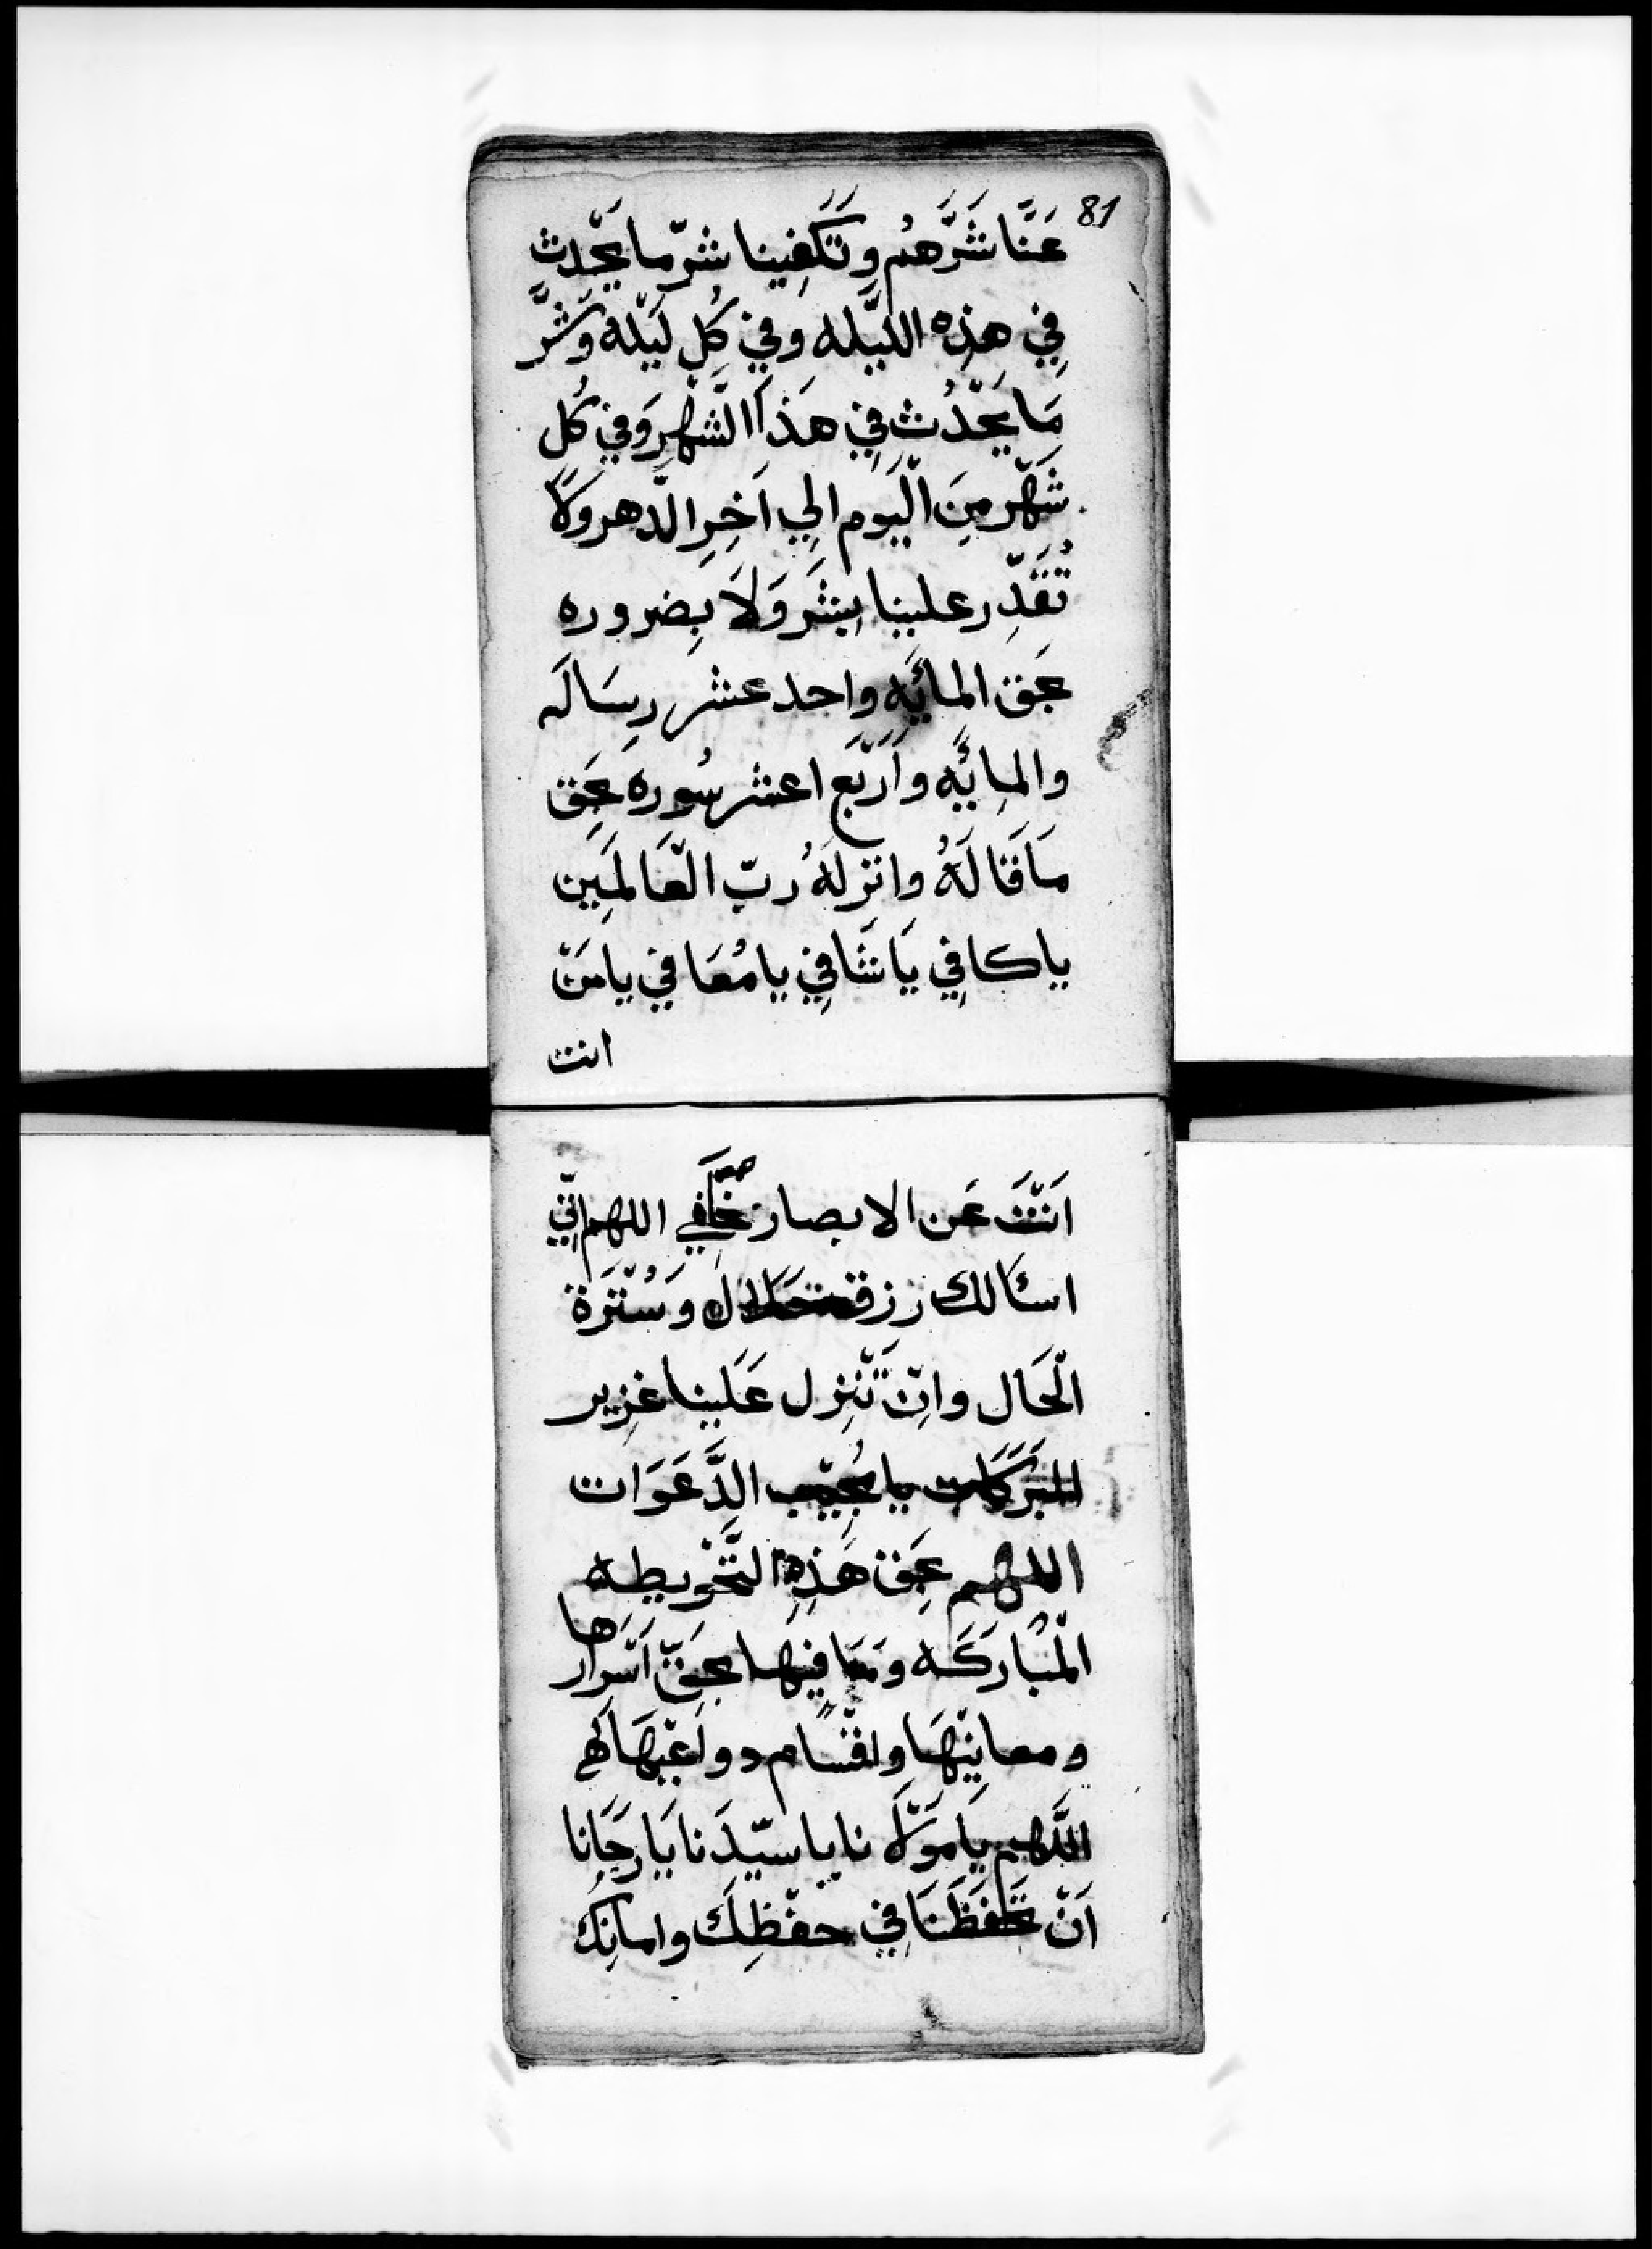 81
عَنَّا شَرَّهُم وَتَكفِينا شرّ ما يَحْدث
فِي هذِه الليّله وفي كُلِ لَيْلة وَشَرَّ
مَا يَحْدُث فِي هَذَا الشَّهْرِ وَفي كُل
شَهْر مِنَ الْيَوم الِي اَخِرِ الدَّهر وَلا
تُقَدِّر علينا بِشَر وَلاَ بِضروره
بحَق المائَيِه واحد عشر رِسَالَه
والمِائَيِه وَاَرْبَع اعشر سُوره بحَِق
مَا قَالَهُ وانزلهُ ربّ الْعَالَمِين
يا كافِي يَا شَافِي يا مُعَافي يا مَنْ
انت
اَنْتَ عَن الابصار خَفي اللهم اِنّي
اسئالك رزق حلال وَسُتْرَة
الْحَال وانْ تَنْزِل عَلَينا غزِير
البَرَكَات يا مُجِيْب الدَّعَوَات
اللهم بحَِق هَذِهِ التَّحْويطه
الْمُبَارَكَه وَمَا فِيها بحَِقّ اَسْرارها
ومعانِيْهَا واقْسَام دواعِيْهَا
اللَّهم يَا مَوْلَانا يا سيّدَنا يَا رجَانا
اَنْ تحَْفَظَنَا فِي حفْظِكَ وامانِكَ